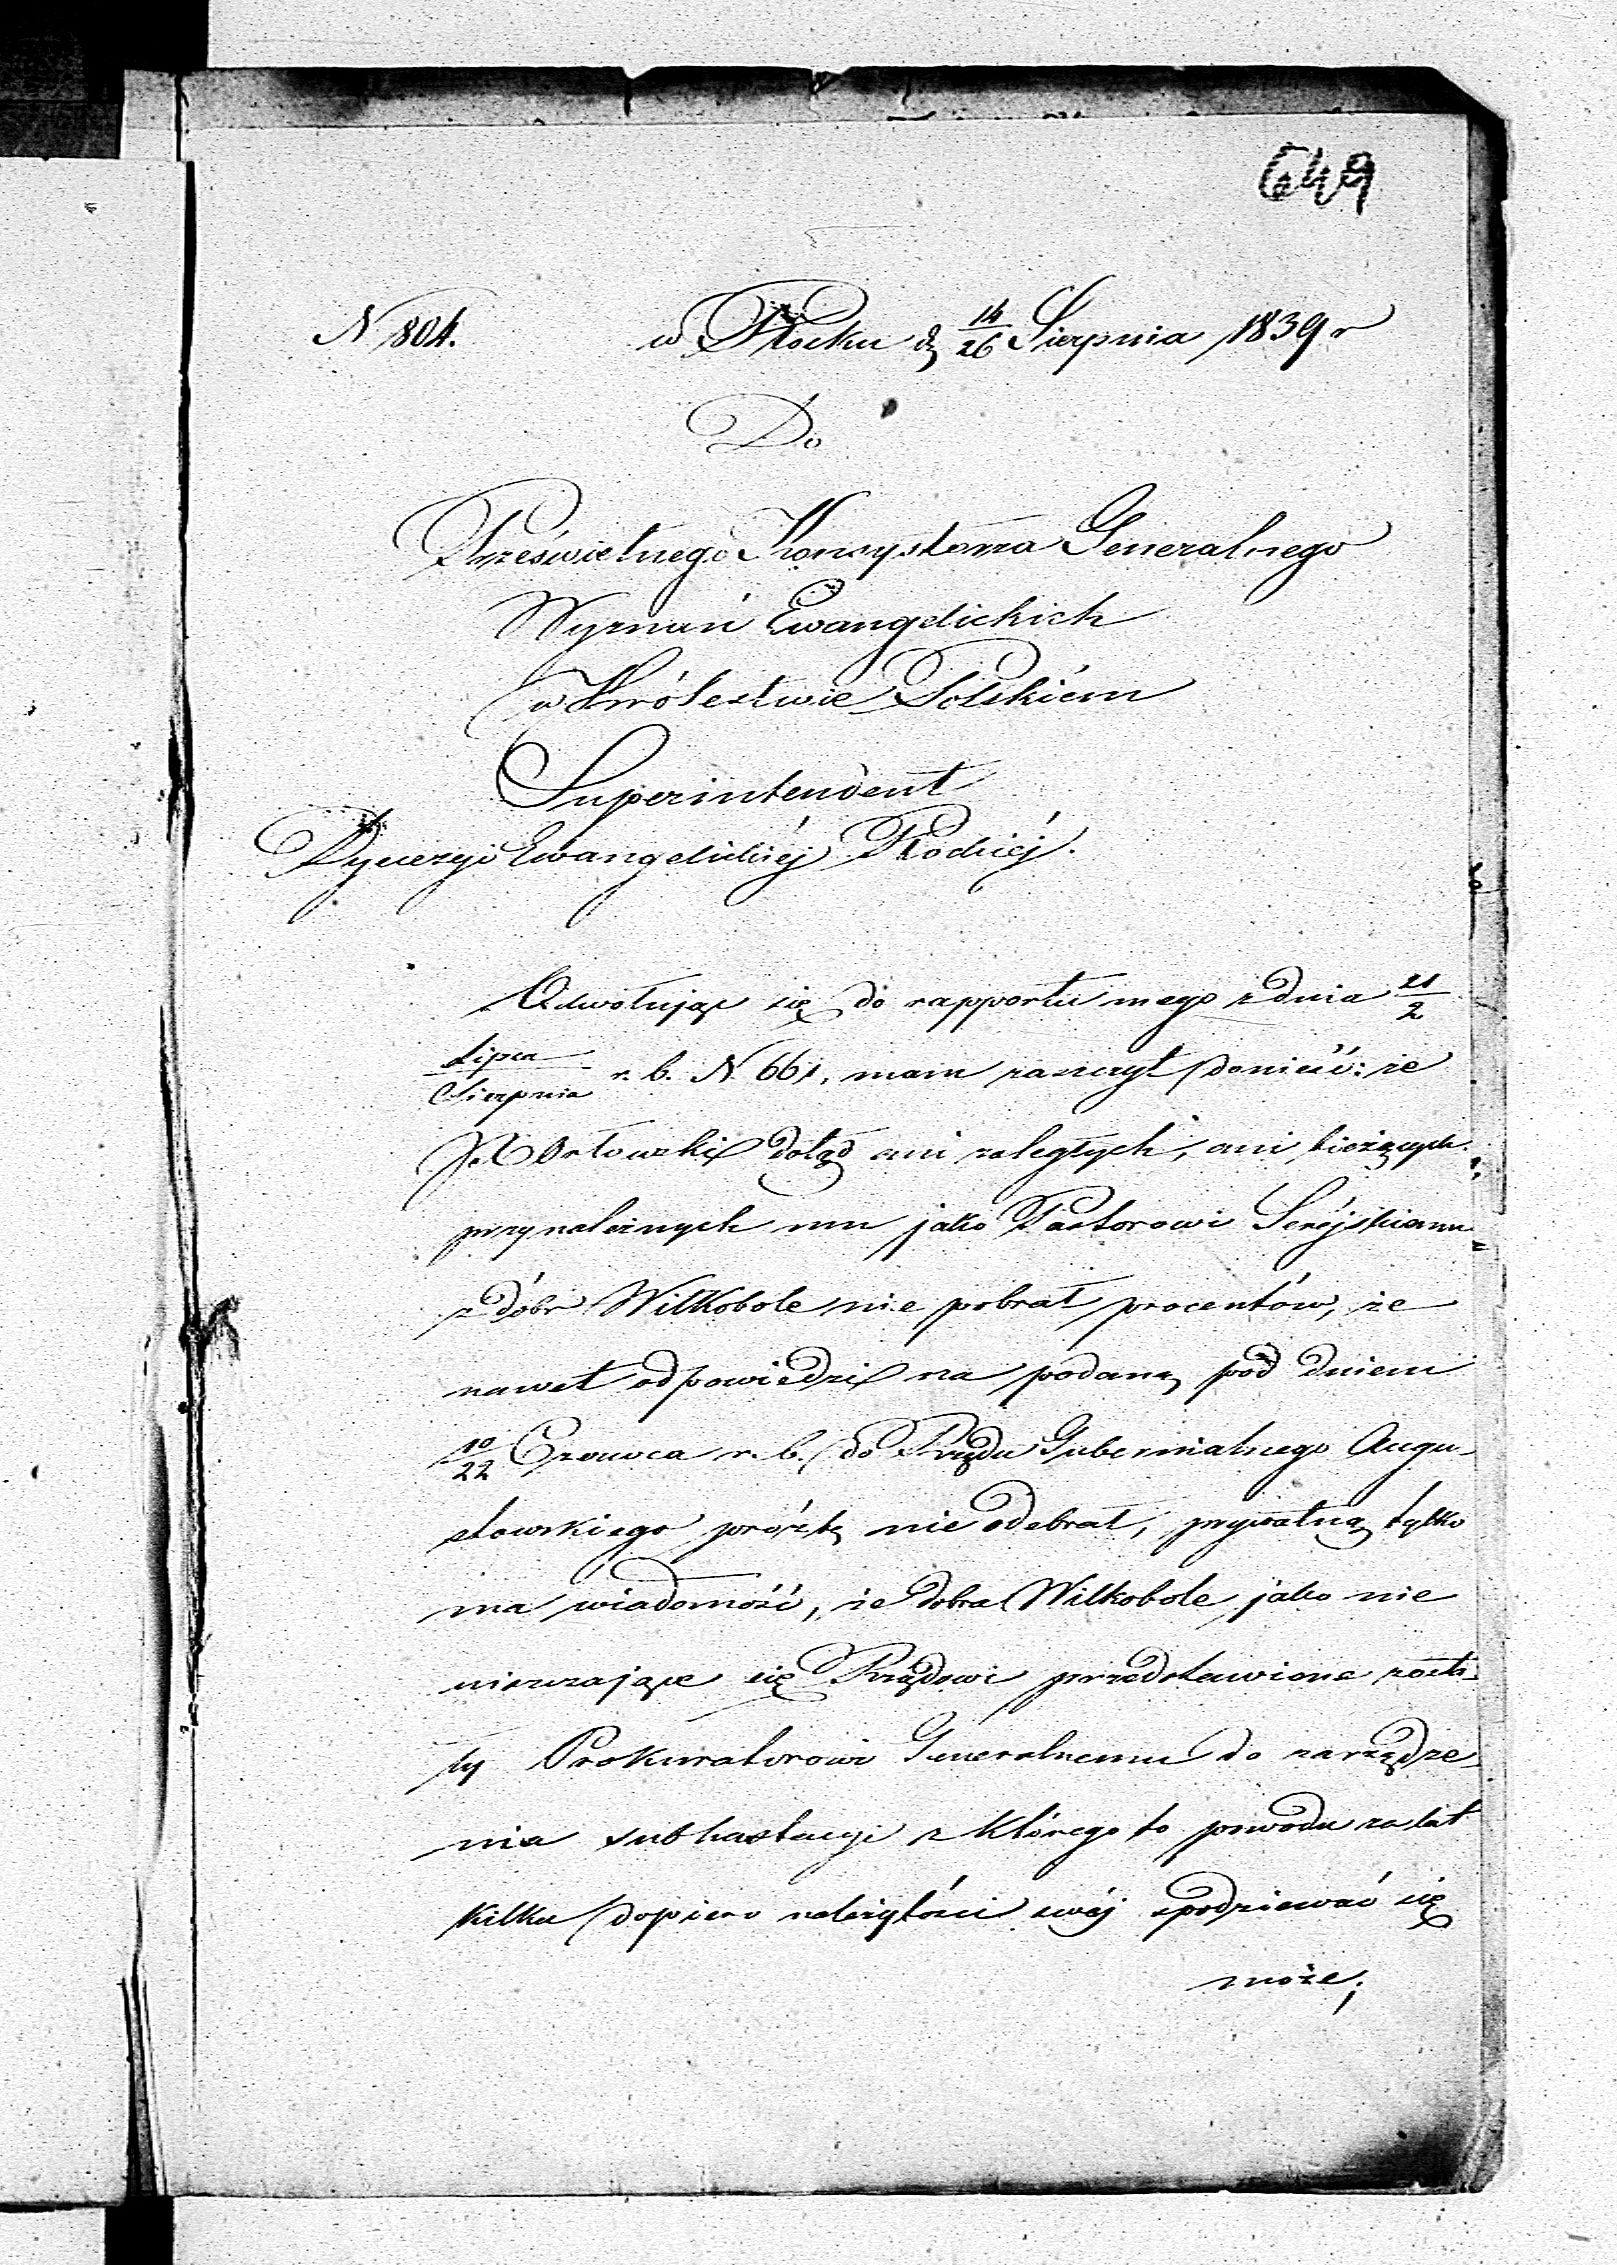 649
N 804. w Płocku d. 14/26 Sierpnia 1839 r
Do
Prześwietnego Konsystorza Generalnego
Wyznań Ewangelickich
w Królestwie Polskiém
Superintendent
Dyecezyi Ewangelickiéj Płockiéj.
Odwołując się do rapportu mego z dnia 21/2
Lipca/Sierpnia r. b. N 661, mam zaszczyt donieść: że
X Orłowski dotąd ani zaległych, ani bieżących
przynależnych mu jako Pastorowi Seréjskiemu
z dóbr Wilkobole nie pobrał procentów, że
nawet odpowiedzi na podaną pod dniem
10/22 Czerwca r. b. do Rządu Gubernialnego Augu-
stowskiego prośbę nie odebrał, prywatną tylko
ma wiadomość, że dobra Wilkobole jako nie
uiszczające się Rządowi przedstawione zosta-
ły Prokuratorowi Generalnemu do zarządze-
nia subhastacyi z którego to powodu za lat
kilka dopiero należytości swéj spodziewać się
może;